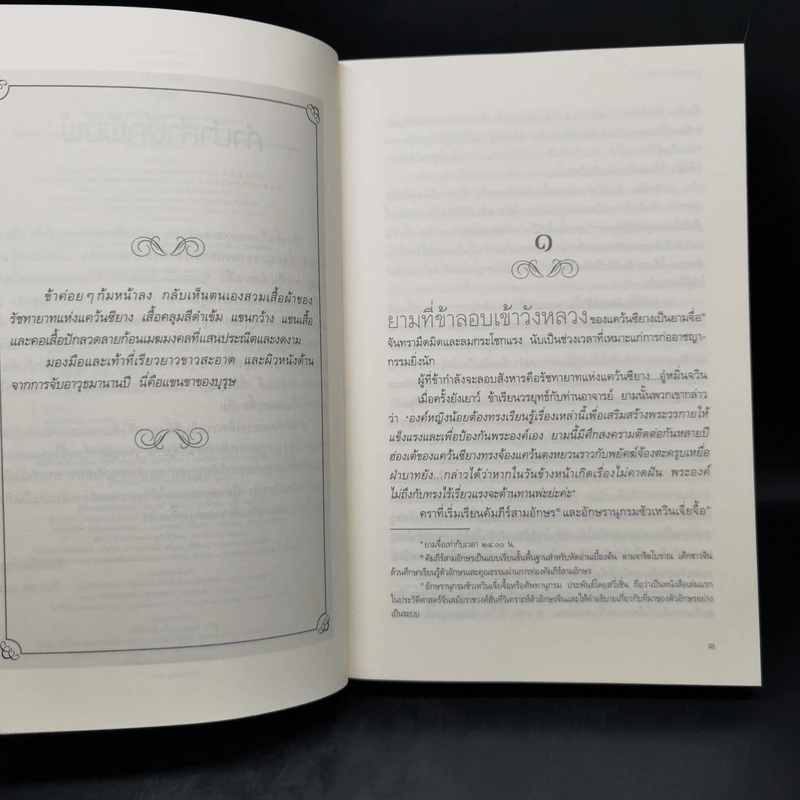 ข้าค่อย ๆ ก้มหน้าลง กลับเห็นตนเองสวมเสื้อผ้าของ
รัชทายาทแห่งแคว้นซียาง เสื้อคลุมสีดำเข้ม แขนกว้าง แขนเสื้อ
และคอเสื้อปักลวดลายก้อนเมฆมงคลที่แสนประณีตและงดงาม
มองมือและเท้าที่เรียวยาวขาวสะอาด และผิวหนังด้าน
จากการจับอาวุธมานานปี นี่คือแขนขาของบุรุษ
๑
ยามที่ข้าลอบเข้าวังหลวงของแคว้นซียางเป็นยามจื่อ
จันทรามืดมิดและลมกระโชกแรง นับเป็นช่วงเวลาที่เหมาะแก่การก่ออาชญา-
กรรมยิ่งนัก
ผู้ที่ข้ากำลังจะลอบสังหารคือรัชทายาทแห่งแคว้นซียาง...อู๋หมิ่นจวิน
เมื่อครั้งยังเยาว์ ข้าเรียนวรยุทธ์กับท่านอาจารย์ ยามนั้นพวกเขากล่าว
ว่า 'องค์หญิงน้อยต้องทรงเรียนรู้เรื่องเหล่านี้เพื่อเสริมสร้างพระวรกายให้
แข็งแรงและเพื่อป้องกันพระองค์เอง ยามนี้มีศึกสงครามติดต่อกันหลายปี
ฮ่องเต้ของแคว้นซียางทรงจ้องแคว้นตงหยวนราวกับพยัคฆ์จ้องตะครุบเหยื่อ
ฝ่าบาทยัง...กล่าวได้ว่าหากในวันข้างหน้าเกิดเรื่องไม่คาดฝัน พระองค์
ไม่ถึงกับทรงไร้เรี่ยวแรงจะต้านทานพ่ะย่ะค่ะ'
คราที่เริ่มเรียนคัมภีร์สามอักษร และอักษรานุกรมซัวเหวินเจี่ยจื้อ
ยามจื่อเท่ากับเวลา ๒๔.๐๐ น.
คัมภีร์สามอักษรเป็นแบบเรียนขั้นพื้นฐานสำหรับหัดอ่านเบื้องต้น ตามจารีตโบราณ เด็กชาวจีน
ล้วนศึกษาเรียนรู้ตัวอักษรและคุณธรรมผ่านการท่องคัมภีร์สามอักษร
อักษรานุกรมซัวเหวินเจี่ยจื้อหรือศัพทานุกรม ประพันธ์โดยสวี่เซิ่น ถือว่าเป็นหนังสือเล่มแรก
ในประวัติศาสตร์จีนสมัยราชวงศ์ฮั่นที่วิเคราะห์ตัวอักษรจีนและให้คำอธิบายเกี่ยวกับที่มาของตัวอักษรอย่าง
เป็นระบบ